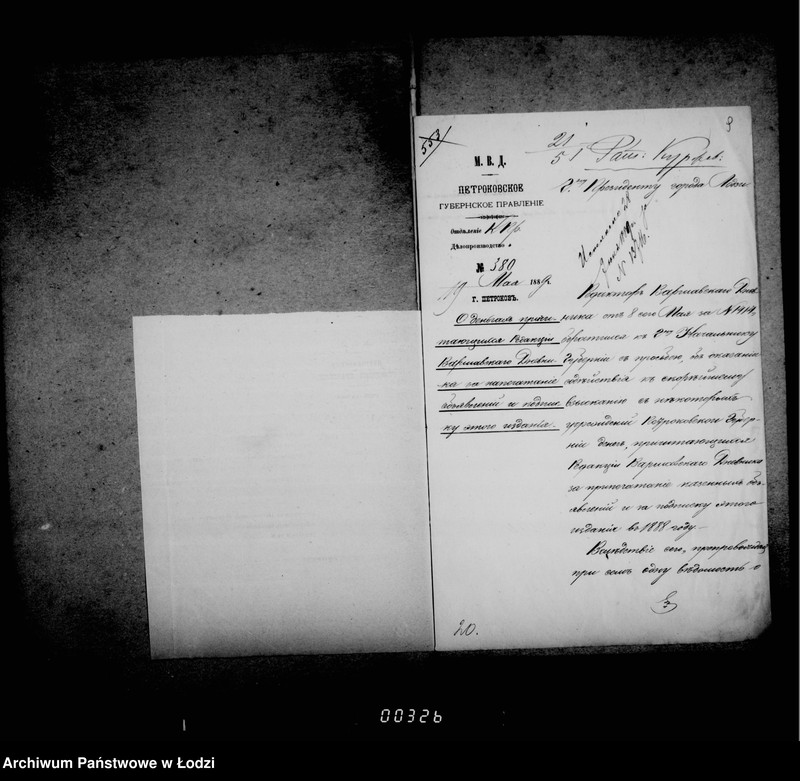 553
9
21/5 1
М. В. Д.
ПЕТРОКОВСКОЕ
ГУБЕРНСКОЕ ПРАВЛЕНІЕ
Отдѣленіе
Дѣлопроизводство
№ 380
19 Мая 1889 г.
Г. ПЕТРОКОВЪ.
О деньгахъ причи-
тающихся Редакціи
Варшавскаго Дневни-
ка за напечатаніе
объявленій и подпис-
ку этого изданія.
Г. Президенту города Лодзи
Исполнено
Редакторъ Варшавскаго Днев-
ника отъ 8 сего Мая за № 1414,
обратился къ Г. Начальнику
Губерніи съ просьбою, объ оказаніи
содѣйствія къ скорѣйшему
взысканію съ нѣкоторыхъ
учрежденій Петроковской Губер-
ніи денегъ, причитающихся
Редакціи Варшавскаго Дневника
за припечатаніе казенныхъ объ-
явленій и за подписку этого
изданія въ 1888 году.
Вслѣдствіе сего, препровождая
при семъ одну вѣдомость о
20.
00326
Archiwum Państwowe w Łodzi